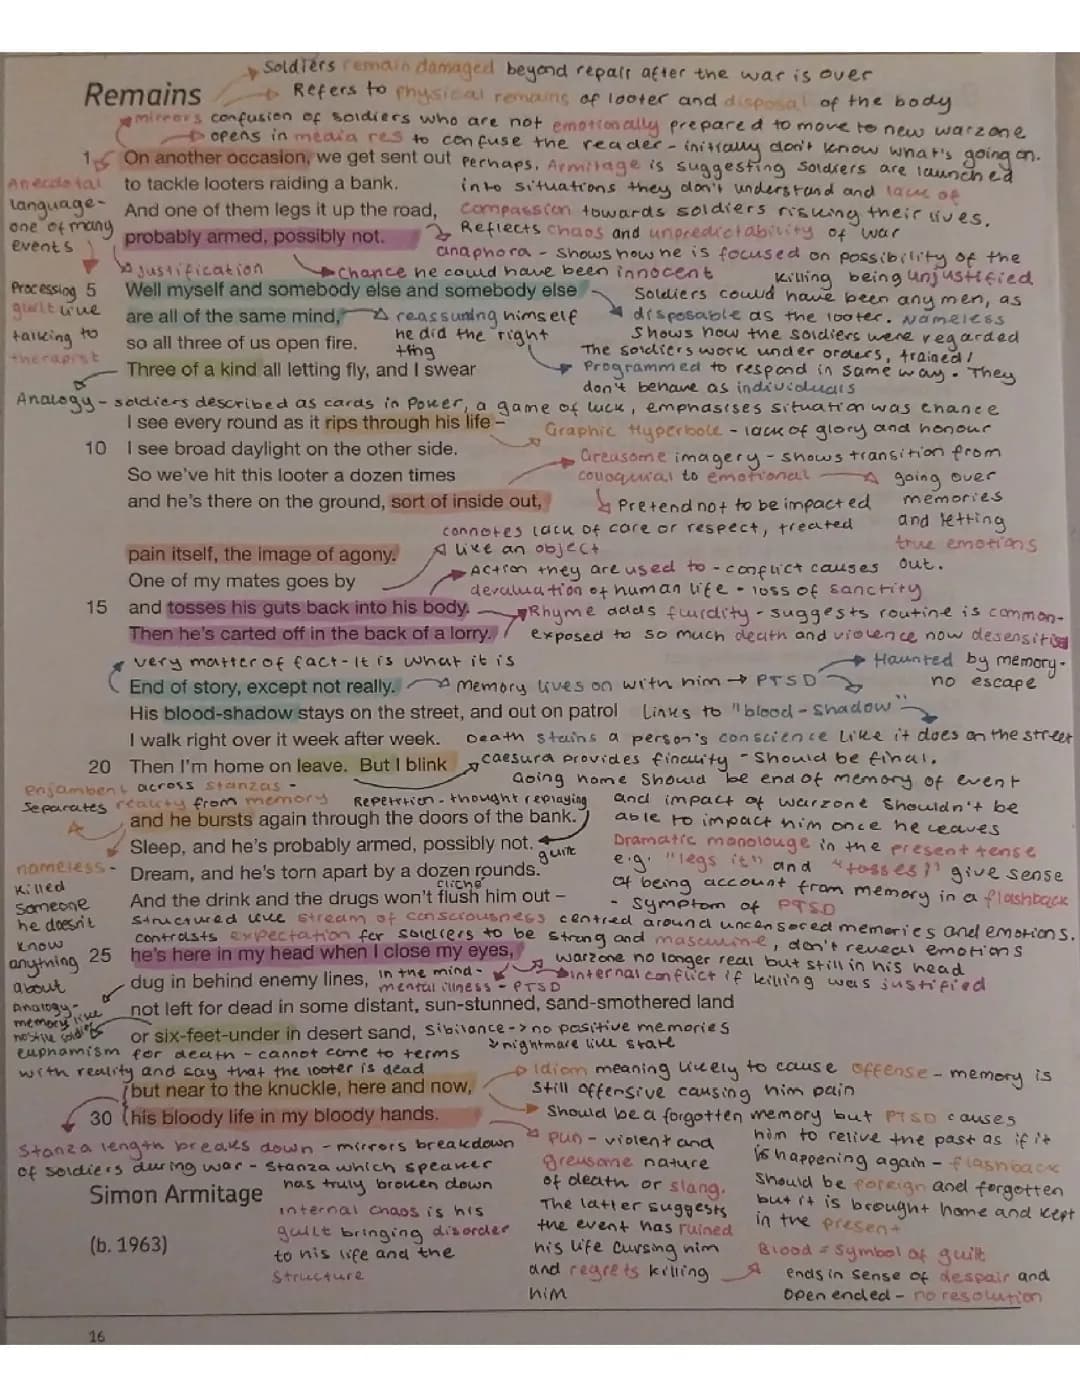 Soldiers remain damaged beyond repair after the war is over
Remains
Refers to physical remains of looter and disposal of the body
mirrors confusion of soldiers who are not emotionally prepared to move to new warzone
opens in media res to confuse the reader - initially don't know what's going on.
1 On another occasion, we get sent out
Perhaps, Armitage is suggesting soldiers are launched
to tackle looters raiding a bank.
into situations they don't understand and lack of
And one of them legs it up the road,
compassion towards soldiers risking their lives.
probably armed, possibly not.
Reflects chaos and unpredictability of war
Anecdotal
language-
one of many
events
anaphora - shows how he is focused on possibility of the
killing being unjustified
Justification
Chance he could have been innocent
Processing
guilt like
talking to
therapist
5 Well myself and somebody else and somebody else
Soldiers could have been any men, as
are all of the same mind,
reassuring himself
he did the right
thing
disposable as the looter. Nameless
shows how the soldiers were regarded
so all three of us open fire.
The soldiers work under orders, trained/
Three of a kind all letting fly, and I swear
Programmed to respond in same way. They
don't behave as individuals
Analogy - soldiers described as cards in Power, a game of luck, emphasises situation was chance
I see every round as it rips through his life -
Graphic Hyperbole - lack of glory and honour
10 I see broad daylight on the other side.
Greasome imagery - shows transition from
So we've hit this looter a dozen times
colloquial to emotional
going over
memories
and letting
true emotions
out.
and he's there on the ground, sort of inside out,
Pretend not to be impacted
connotes lack of care or respect, treated
like an object
pain itself, the image of agony.
Action they are used to - conflict causes
One of my mates goes by
devaluation of human life - loss of sanctity
15 and tosses his guts back into his body.
Rhyme adds fluidity - suggests routine is common-
Then he's carted off in the back of a lorry.
exposed to so much death and violence now desensitised
very matter of fact - It is what it is
Haunted by memory-
no escape
End of story, except not really.
Memory lives on with him → PTSD
His blood-shadow stays on the street, and out on patrol
Links to "blood-shadow"
I walk right over it week after week.
Death stains a person's conscience like it does on the street
20 Then I'm home on leave. But I blink
caesura provides finality - Should be final.
Going home should be end of memory of event
and impact of warzone shouldn't be
able to impact him once he leaves
enjambent across stanzas -
Separates reality from memory
Repetition - thought replaying
and he bursts again through the doors of the bank.
Sleep, and he's probably armed, possibly not.
guilt
Dramatic monolouge in the present tense
e.g. "legs it" and "tosses" give sense
of being account from memory in a flashback
- symptom of PTSD
nameless-
killed
someone
he doesn't
know
anything
about
Dream, and he's torn apart by a dozen rounds.
cliche
And the drink and the drugs won't flush him out –
Structured like stream of consciousness centred around uncensored memories and emotions.
contrasts expectation for soldiers to be strong and masculine, don't reveal emotions
25 he's here in my head when I close my eyes,
warzone no longer real but still in his head
dug in behind enemy lines,
in the mind-
mental illness - PTSD
internal conflict if killing was justified
Analogy-
memory like
hostile soldier
not left for dead in some distant, sun-stunned, sand-smothered land
or six-feet-under in desert sand,
Sibilance -> no positive memories
nightmare like state
euphamism for death - cannot come to terms
with reality and say that the looter is dead
but near to the knuckle, here and now,
Idiom meaning likely to cause offense - memory is
still offensive causing him pain
30 his bloody life in my bloody hands.
Should be a forgotten memory but PTSD causes
him to relive the past as if it
is happening again - flashback
Should be foreign and forgotten
but it is brought home and kept
in the present
Stanza length breaks down - mirrors breakdown
of soldiers during war - Stanza which speaker
has truly broken down
pun - violent and
greusome nature
of death or slang.
The latter suggests
the event has ruined
his life cursing him
and regrets killing
him
Simon Armitage
internal chaos is his
guilt bringing disorder
to his life and the
structure
(b. 1963)
Blood = Symbol of guilt
ends in sense of despair and
open ended - no resolution
16